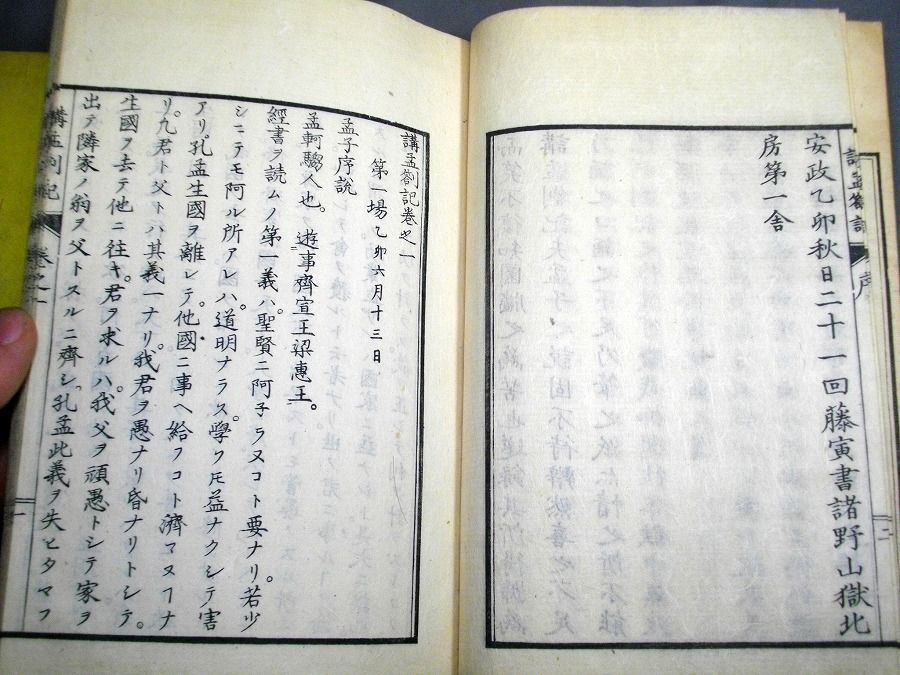 安政乙卯秋日二十一回藤寅書諸野山獄北
房第一舎
講孟劄記巻之一
第一場 乙卯六月十三日
孟子序説
孟軻騶人也。遊事齊宣王梁惠王。
經書ヲ読ムノ第一義ハ。聖賢ニ阿子ラヌコト要ナリ。若少
シニテモ阿ル所アレハ。道明ナラス。学フ𪜈益ナクシテ害
アリ。孔孟生國ヲ離レテ。他國ニ事ヘ給フコト濟マヌヿナ
リ。凢君ト父トハ其義一ナリ。我君ヲ愚ナリ昏ナリトシテ。
生國ヲ去テ他ニ往キ。君ヲ求ルハ。我父ヲ頑愚トシテ家ヲ
出テ隣家ノ翁ヲ父トスルニ齊シ。孔孟此義ヲ失ヒタマフ
講孟劄記
巻之一
一
序
二